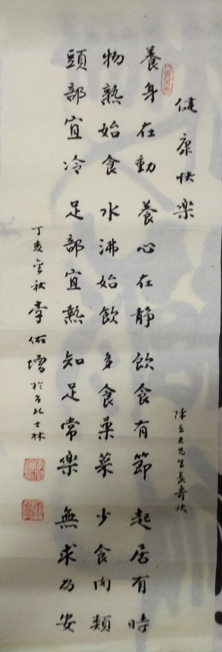 健康快樂
陳立夫先生長壽訣
養身在動 養心在靜 飲食有節 起居有時
物熟始食 水沸始飲 多食菓菜 少食肉類
頭部宜冷 足部宜熱 知足常樂 無求乃安
丁亥 秋 李佑增於台北士林